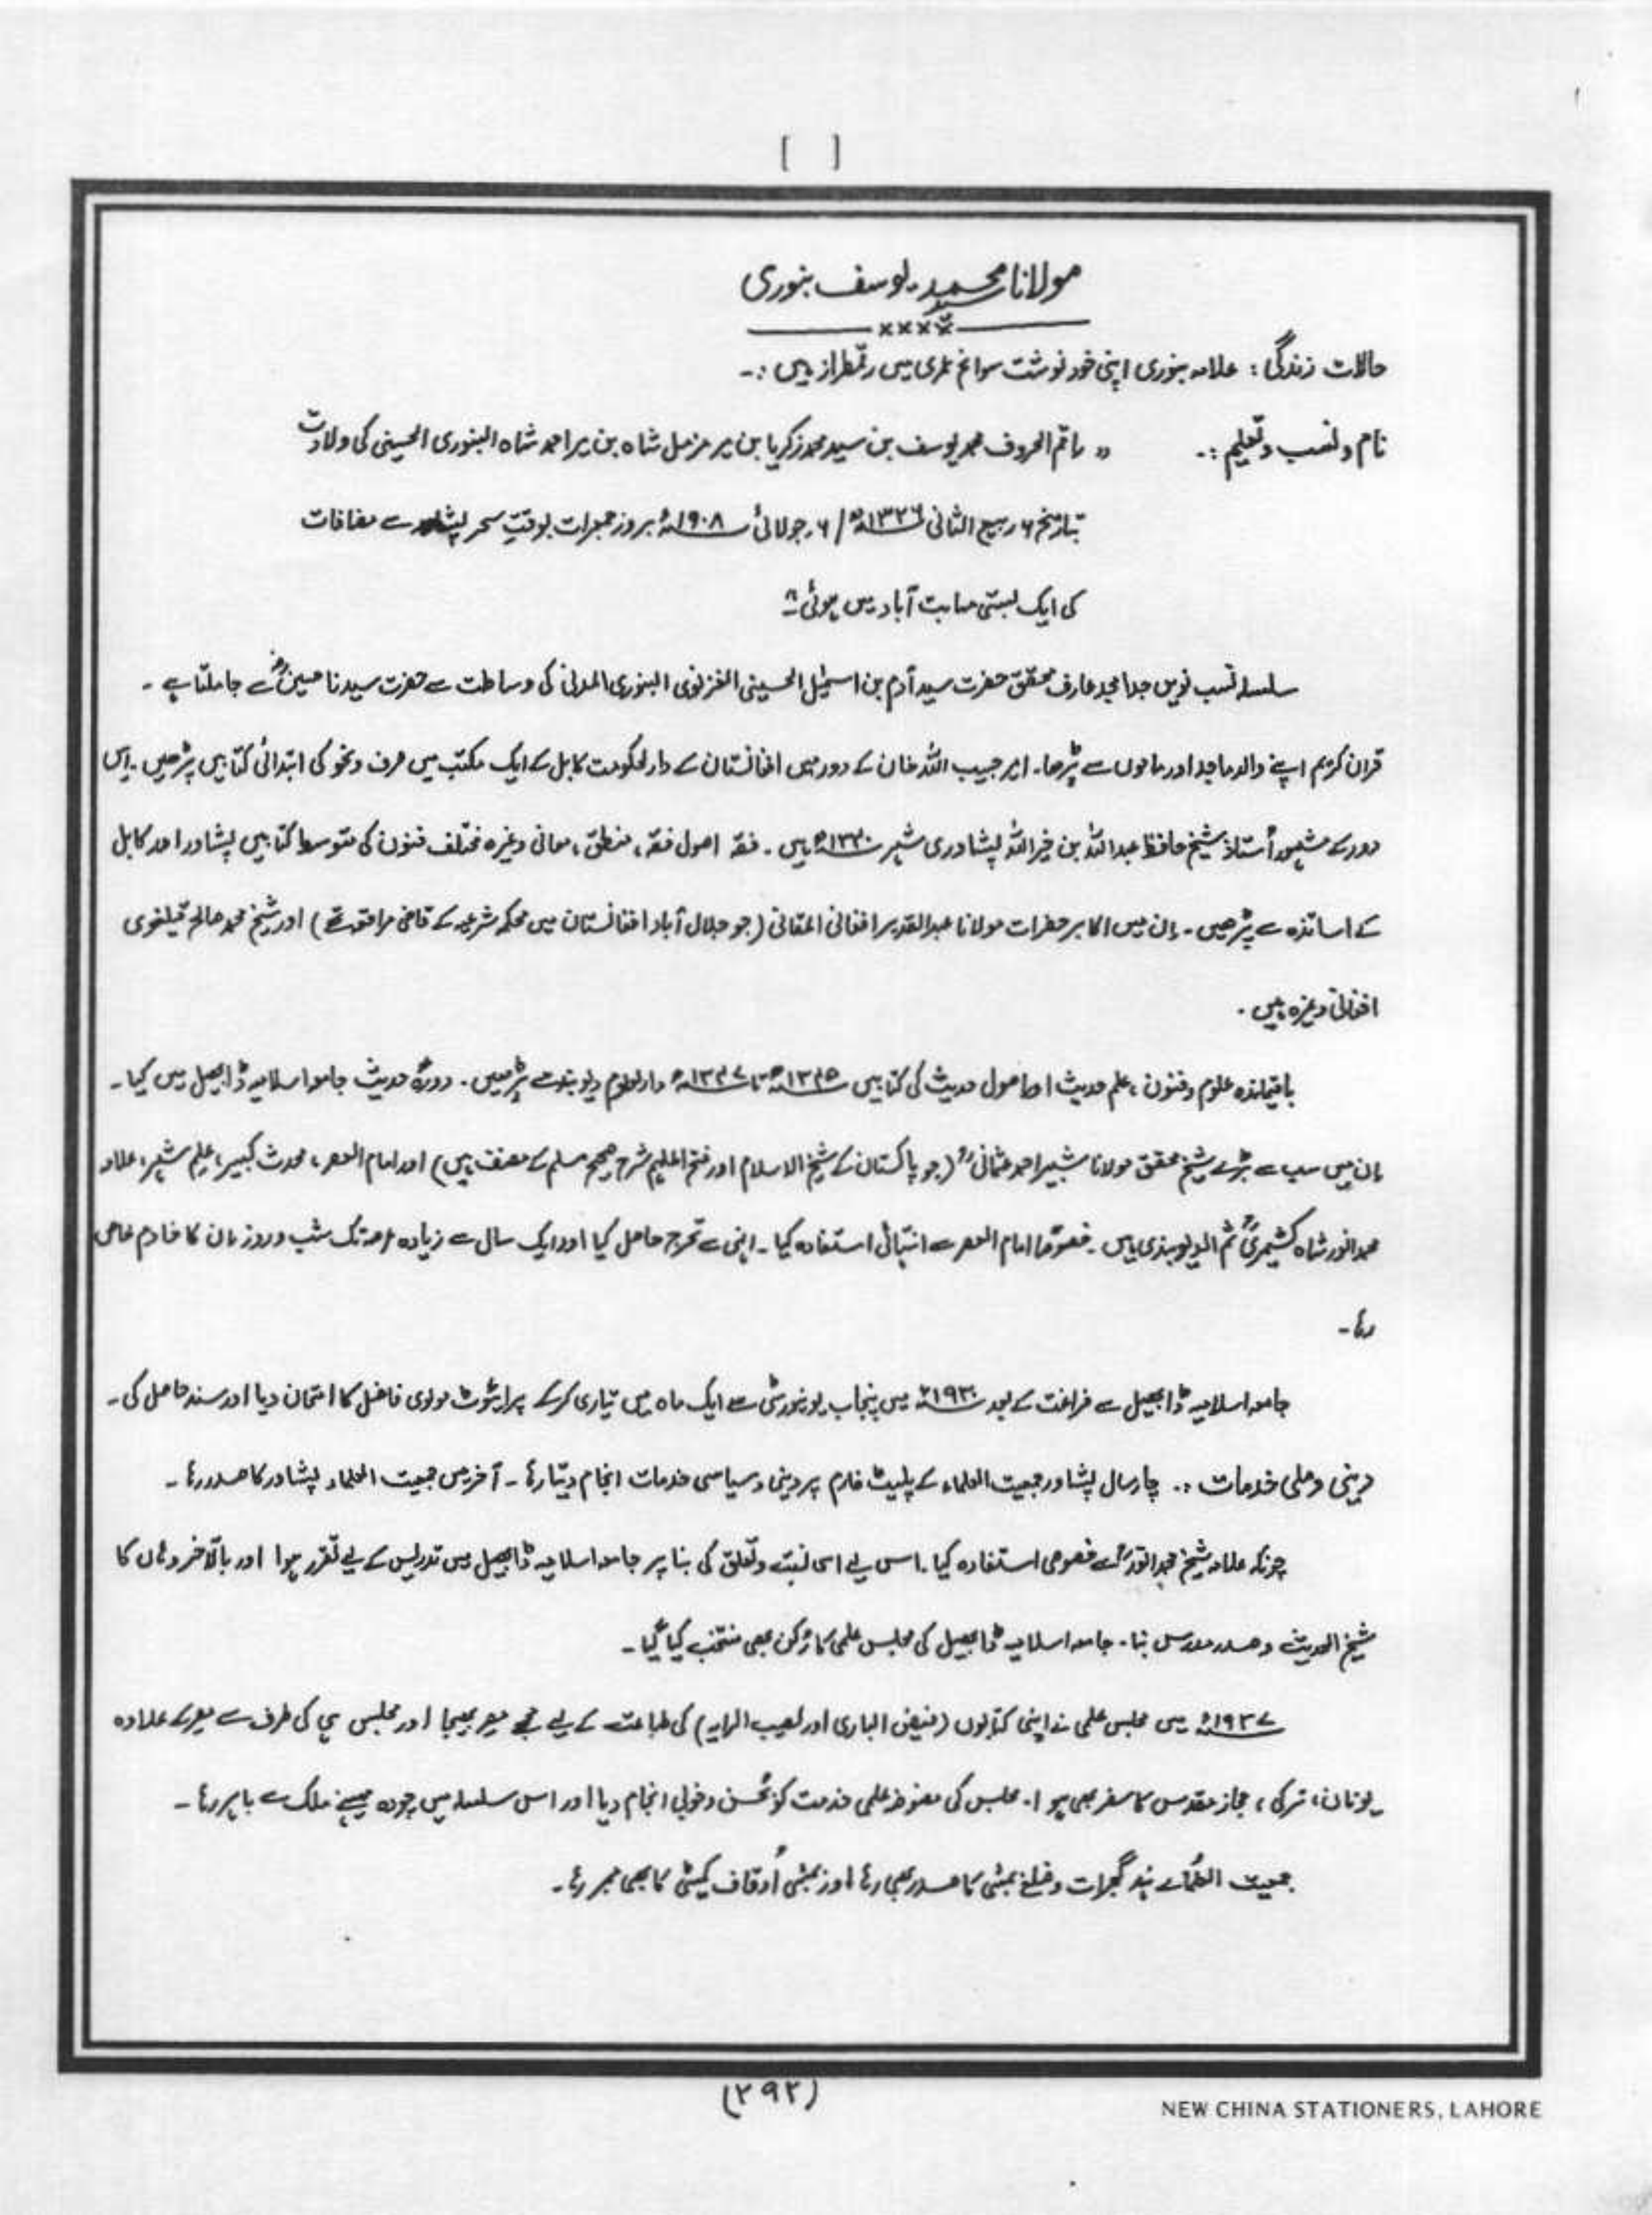 [ ]
مولانا محمد یوسف بنوری
××××
حالات زندگی : علامہ بنوری اپنی خود نوشت سوانح عمری میں رقمطراز ہیں :۔
نام و نسب و تعلیم :۔ " راقم الحروف محمد یوسف بن سید محمد زکریا بن میر مزمل شاہ بن میر احمد شاہ البنوری الحسینی کی ولادت
بتاریخ ۶ ربیع الثانی ۱۳۲۶ھ / ۶ جولائی ۱۹۰۸ء بروز جمعرات بوقتِ سحر پشاور سے مضافات
کی ایک بستی مہابت آباد میں ہوئی "
سلسلہ نسب نویں جد امجد عارف محقق حضرت سید آدم بن اسمٰعیل الحسینی الغزنوی البنوری المدنی کی وساطت سے حضرت سیدنا حسینؓ سے جا ملتا ہے ۔
قران کریم اپنے والد ماجد اور ماموں سے پڑھا۔ امیر حبیب اللہ خان کے دور میں افغانستان کے دارلحکومت کابل کے ایک مکتب میں صرف و نحو کی ابتدائی کتابیں پڑھیں ۔ اس
دور کے مشہور اُستاذ شیخ حافظ عبداللہ بن خیراللہ پشاوری شہید ۱۳۴۰ھ ہیں ۔ فقہ اصول فقہ ، منطق ، معانی وغیرہ مختلف فنون کی متوسط کتابیں پشاور اور کابل
کے اساتذہ سے پڑھیں ۔ ان میں اکابر حضرات مولانا عبدالقدیر افغانی اللمقانی (جو جلال آباد افغانستان میں محکمہ شرعیہ کے قاضی مرافق تھے ) اور شیخ محمد صالح قیلغوی
افغانی وغیرہ ہیں ۔
باقیماندہ علوم و فنون ، علم حدیث اور اصول حدیث کی کتابیں ۱۳۴۵ھ تا ۱۳۴۷ھ دارلعلوم دیوبند سے پڑھیں ۔ دورۂ حدیث جامعہ اسلامیہ ڈابھیل میں کیا ۔
ان میں سب سے بڑے شیخ محقق مولانا شبیر احمد عثمانیؒ (جو پاکستان کے شیخ الاسلام اور فتح الملہم شرح صحیح مسلم کے مصنف ہیں) اور امام العصر ، محدث کبیر ، علم شہیر ، علامہ
محمد انور شاہ کشمیریؒ ثم الدیوبندی ہیں ۔ خصوصًا امام العصر سے انتہائی استفادہ کیا ۔ انہی سے تخرج حاصل کیا اور ایک سال سے زیادہ عرصہ تک شب و روز ان کا خادم خاص
رہا ۔
جامعہ اسلامیہ ڈابھیل سے فراغت کے بعد ۱۹۳۰ء میں پنجاب یونیورسٹی سے ایک ماہ میں تیاری کرکے پرائیوٹ مولوی فاضل کا امتحان دیا اور سند حاصل کی ۔
دینی و ملی خدمات :۔ چار سال پشاور جمعیت العلماء کے پلیٹ فارم پر دینی و سیاسی خدمات انجام دیتا رہا ۔ آخر میں جمعیت العلماء پشاور کا صدر رہا ۔
چونکہ علامہ شیخ محمد انورؒ سے خصوصی استفادہ کیا ۔ اس لیے اسی نسبت و تعلق کی بنا پر جامعہ اسلامیہ ڈابھیل میں تدریس کے لیے تقرر ہوا اور بالآخر وہاں کا
شیخ الحدیث و صدر مدرس بنا ۔ جامعہ اسلامیہ ڈابھیل کی مجلس علمی کا رُکن بھی منتخب کیا گیا ۔
۱۹۳۷ء میں مجلس علمی نے اپنی کتابوں (فیض الباری اور نصب الرایہ) کی طباعت کے لیے مجھے مصر بھیجا اور مجلس ہی کی طرف سے مصر کے علاوہ
یونان ، ترکی ، حجاز مقدس کا سفر بھی ہوا ۔ مجلس کی مفوضہ علمی خدمت کو بحُسن و خوبی انجام دیا اور اس سلسلہ میں چودہ مہینے ملک سے باہر رہا ۔
جمعیت العُلمائے ہند گجرات و ضلع بمبئی کا صدر بھی رہا اور بمبئی اُوقاف کمیٹی کا بھی ممبر رہا ۔
(۲۹۲)
NEW CHINA STATIONERS, LAHORE